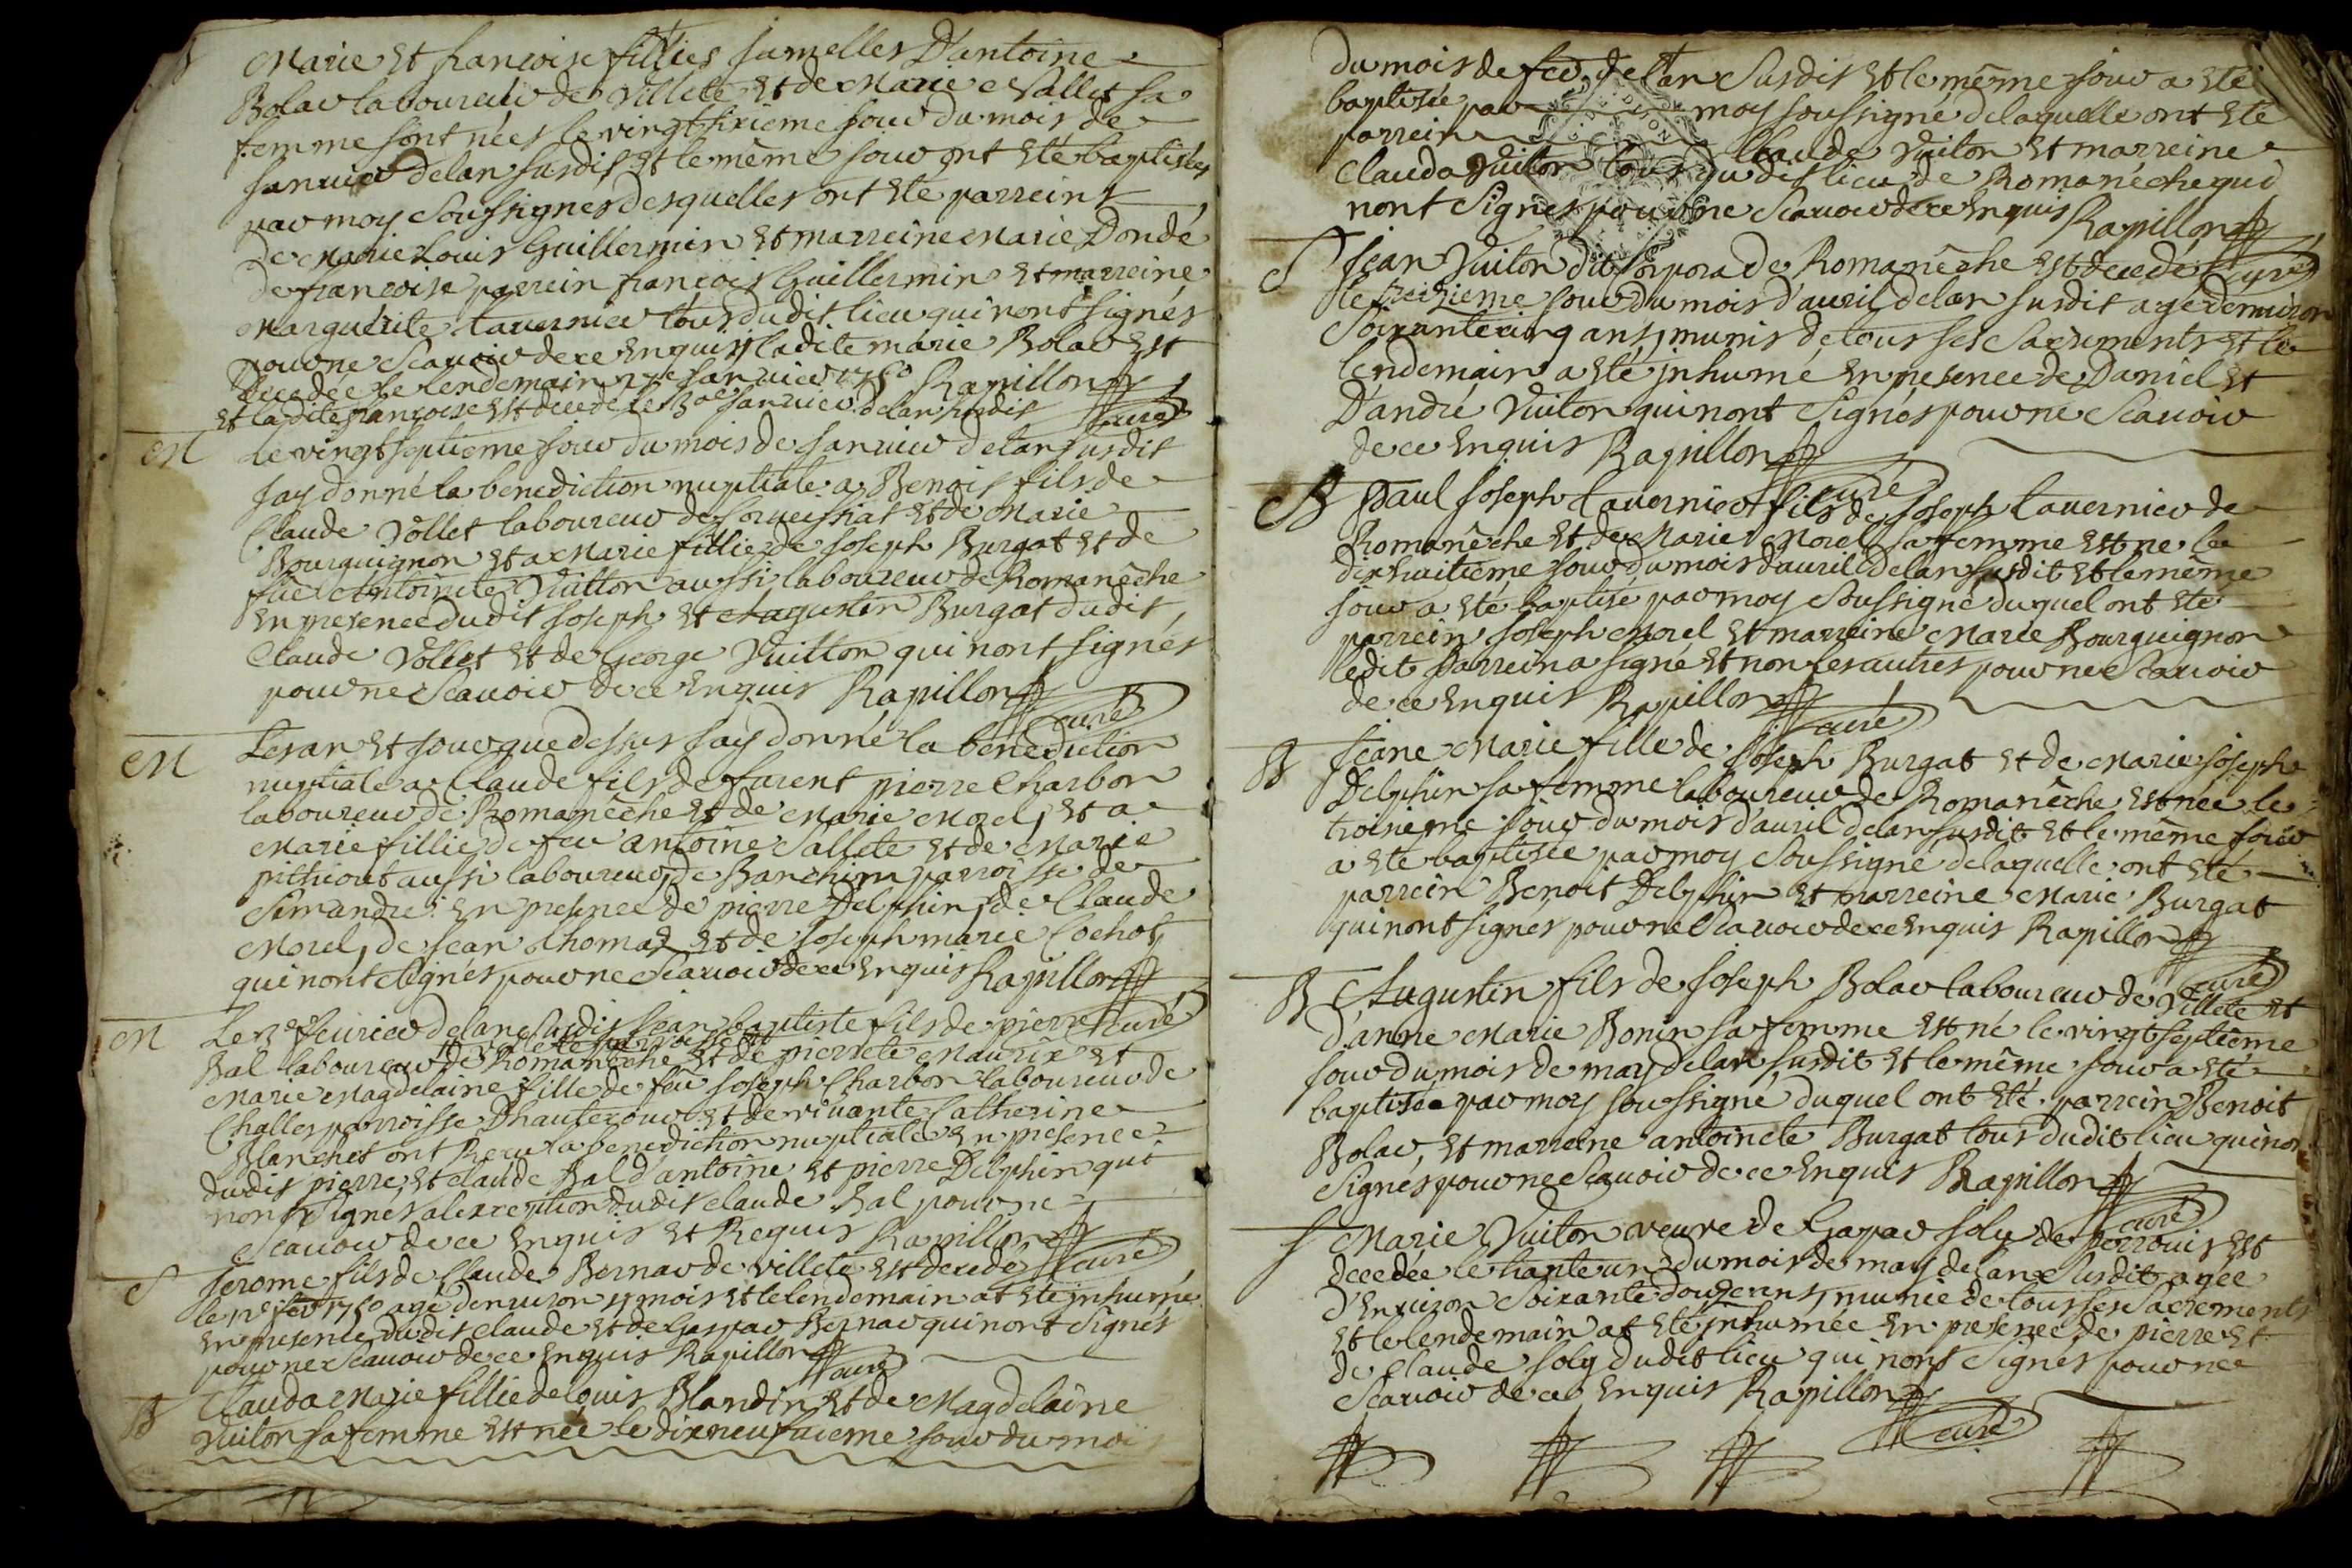 B Marie et francoise fillies Jumelles D'antoine
Bolar laboureur de villete et de Marie Vallet sa
femme sont neés le vingtsixieme jour du mois de
janvier de lan susdit et le même jour ont eté baptisées
par moy soussignés desquelles ont eté parreins
de Marie Louis Guillermin et marreine Marie Donde
de francoise parrein francois Guillermin et marreine
Marguerite tavernier tous dudit lieu qui nont signés
pour ne scavoir de ce enquis ladite marie Bolar est
decedée le lendemain 27e janvier 1760 Rapillon
et ladite francoise est decedé le 30e janvier de lan susdit curé
M Le vingtseptieme jour du mois de janvier de lan susdit
Jay donné la benediction nuptiale a Benois fils de
Claude Vollet laboureur de Corveissiat et de Marie
Bourguignon et a Marie fillie de joseph Burgat et de
fue Antoinete Vuitton aussi laboureur de Romanêche
en presence dudit joseph et Augustin Burgat dudit
Claude Vollet et de George Vuitton qui nont signés
pour ne scavoir de ce enquis Rapillon
curé
M Lesan et jour que dessus jay donné la benediction
nuptiale a Claude fils de furent pierre Charbon
laboureur de Romanêche et de Marie Morel, et a
Marie fillie de feu antoine Sallete et de Marie
pithiout aussi laboureur, de Banchim parroisse de
Simandre en presence de pierre Delphin, de Claude
Morel, de jean thomas et de joseph marie Cochot,
qui nont signés pour ne scavoir de ce enquis Rapillon
curé
M Le 12e fevrier de lan susdit jean baptiste fils de pierre
Bal laboureur de Romanêche et de pierrete Maurix et
Marie Magdelaine fille de feu joseph Charbon laboureur de
Challes parroisse Dhautecour et de vivante Catherine
Blanchet ont Recu la benediction nuptiale en presence
dudit pierre, et claude Bal d'antoine et pierre Delphin qui
nont signés alexception dudit claude Bal pour ne
scavoir de ce enquis et Requis Rapillon
curé
S Jerome fils de Claude Bernar de villete est decedé
le 12e fevr 1760 agé denviron 15 mois et le lendemain at eté inhumé
en presence dudit claude et de Gaspar Bernar qui nont signés
pour ne scavoir de ce enquis Rapillon
curé
B Clauda Marie fillie de louis Blandin et de Magdelaine
Vuiton sa femme est neé le dixneufvieme jour du mois
du mois de fev. de lan susdit et le même jour a eté
baptisée par moy soussigné de laquelle ont eté
parrein Claude Vuiton et marreine
Clauda Vuiton tous du dit lieu de Romanêche qui
nont signés pour ne scavoir de ce enquis Rapillon
curé
S Jean Vuiton dit Corpora de Romanêche est decedé
le treizieme jour du mois d'avril de lan susdit agé denviron
soixantecinq ans, munis de tous ses sacrements et le
lendemain a eté inhumé en presence de Daniel et
D'andré Vuiton qui nont signés pour ne scavoir
de ce enquis Rapillon
curé
B Paul joseph tavernier fils de joseph tavernier de
Romanêche et de Marie Morel sa femme est né le
dixhuitième jour du mois d'avril de lan susdit et le même
jour a eté baptisé par moy soussigné duquel ont eté
parrein joseph Morel et marreine Marie Bourguignon
ledit parrein a signé et non les autres pour ne scavoir
de ce enquis Rapillon
curé
B Jeane Marie fille de joseph Burgat et de Marie joseph
Delphin sa femme laboureur de Romanêche est neé le
troisieme jour du mois d'avril de lan susdit et le même jour
a eté baptisée par moy soussigné de laquelle ont eté
parrein Benoit Delphin et marreine Marie Burgat
qui nont signés pour ne scavoir de ce enquis Rapillon
curé
B Augustin fils de joseph Bolar laboureur de villete et
D'anne Marie Bonin sa femme est né le vingtseptième
jour du mois de may de lan susdit et le même jour a eté
baptisée par moy soussigné duquel ont eté parrein Benoit
Bolar, et marreine antoinete Burgat tous dudit lieu qui nont
signés pour ne scavoir de ce enquis Rapillon
curé
S Marie Vuiton veuve de Gapar joly de perrouis est
decedée le trante un du mois de may de lan susdit ageé
d'environ soixantedouze ans, munie de tous ses sacrements
et le lendemain at eté inhumée en presence de pierre et
de Claude joly dudit lieu qui nont signés pour ne
scavoir de ce enquis Rapillon
curé